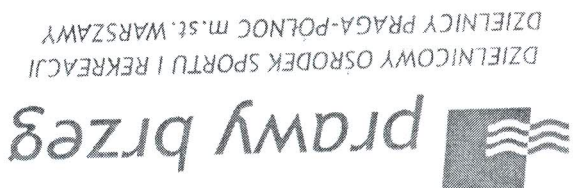 prawy brzeg
DZIELNICOWY OŚRODEK SPORTU I REKREACJI
DZIELNICY PRAGA-PÓŁNOC m.st. WARSZAWY